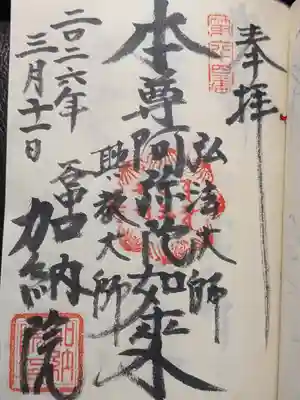 奉拝
弘法大師
本尊阿弥陀如来
興教大師
谷中 加納院
二〇二六年
三月十一日